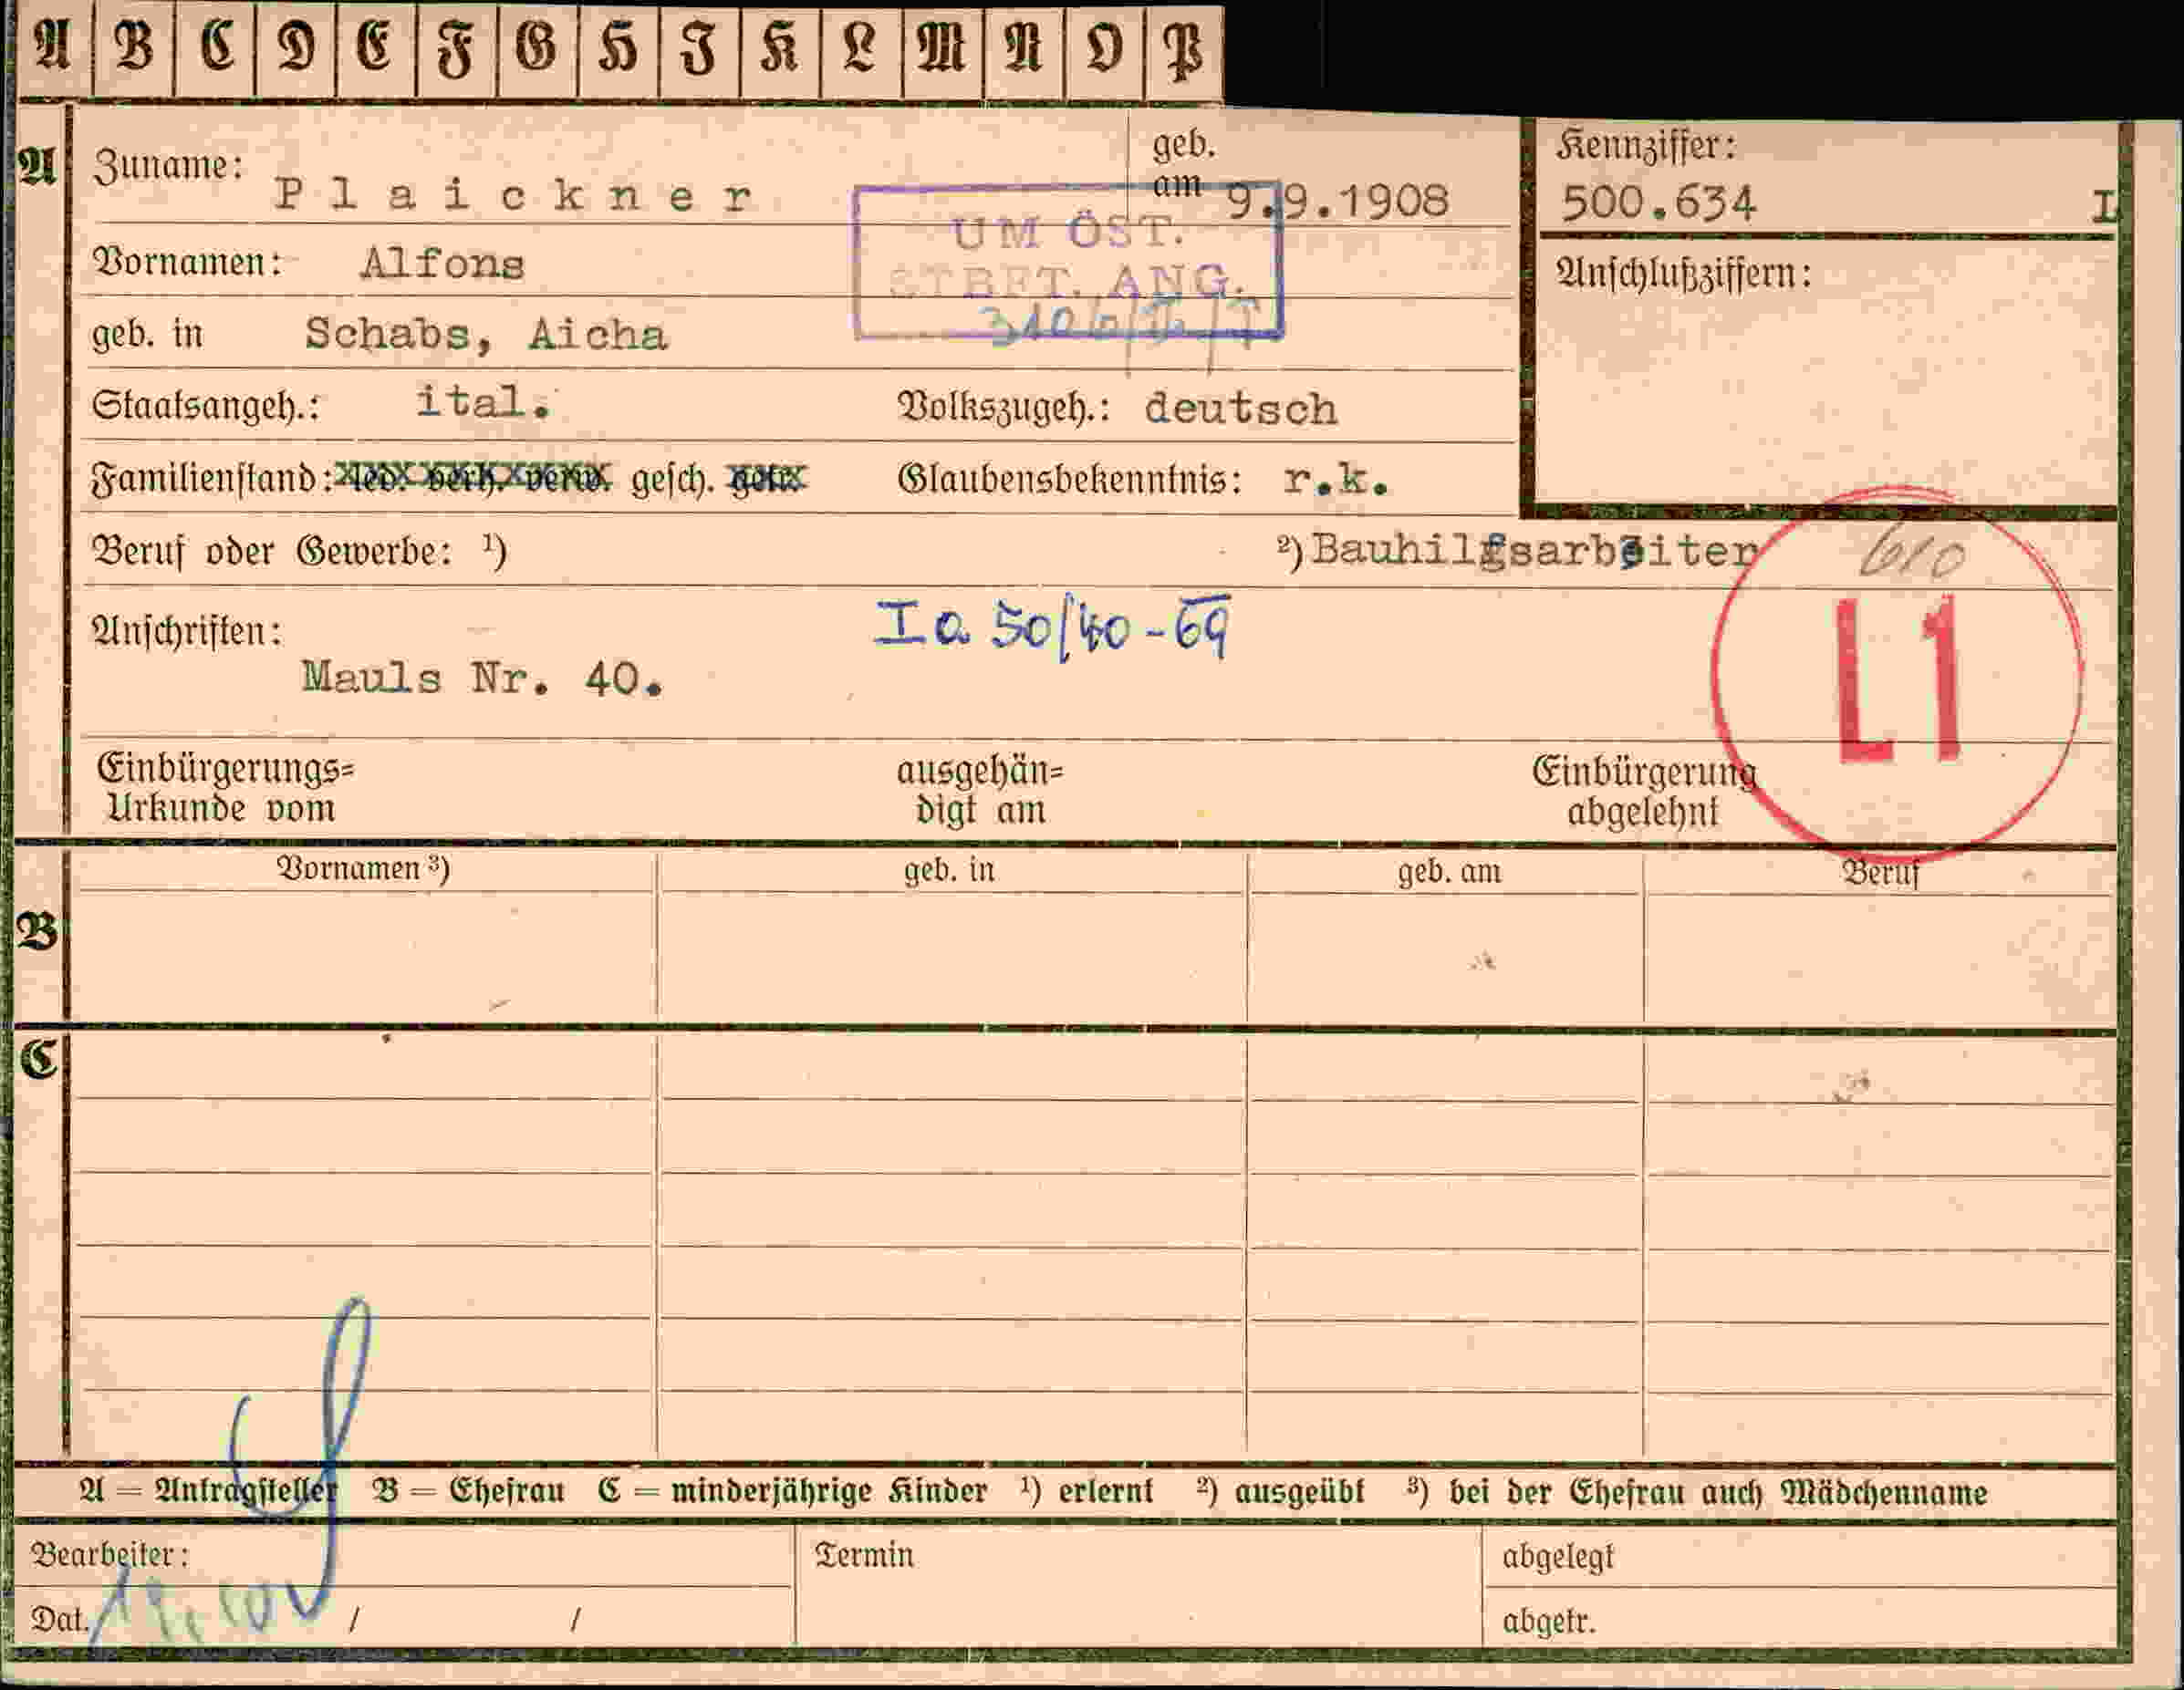 A B C D E F G H I K L M N O P
A
Zuname: Plaickner
geb. am 9.9.1908
Kennziffer:
500.634 I
UM ÖST.
STBFT. ANG.
Vornamen: Alfons
Anschlußziffern:
geb. in Schabs, Aicha
Staatsangeh.: ital. Volkszugeh.: deutsch
Familienstand: led. verh. verw. gesch. getr. Glaubensbekenntnis: r.k.
Beruf oder Gewerbe: ¹) ²) Bauhilfsarbeiter
610
L1
Anschriften: Ia 50/40-69
Mauls Nr. 40.
Einbürgerungs= ausgehän= Einbürgerung
Urkunde vom digt am abgelehnt
Vornamen ³) geb. in geb. am Beruf
B
C
A = Antragsteller B = Ehefrau C = minderjährige Kinder ¹) erlernt ²) ausgeübt ³) bei der Ehefrau auch Mädchenname
Bearbeiter: Termin abgelegt
Dat. / / abgetr.